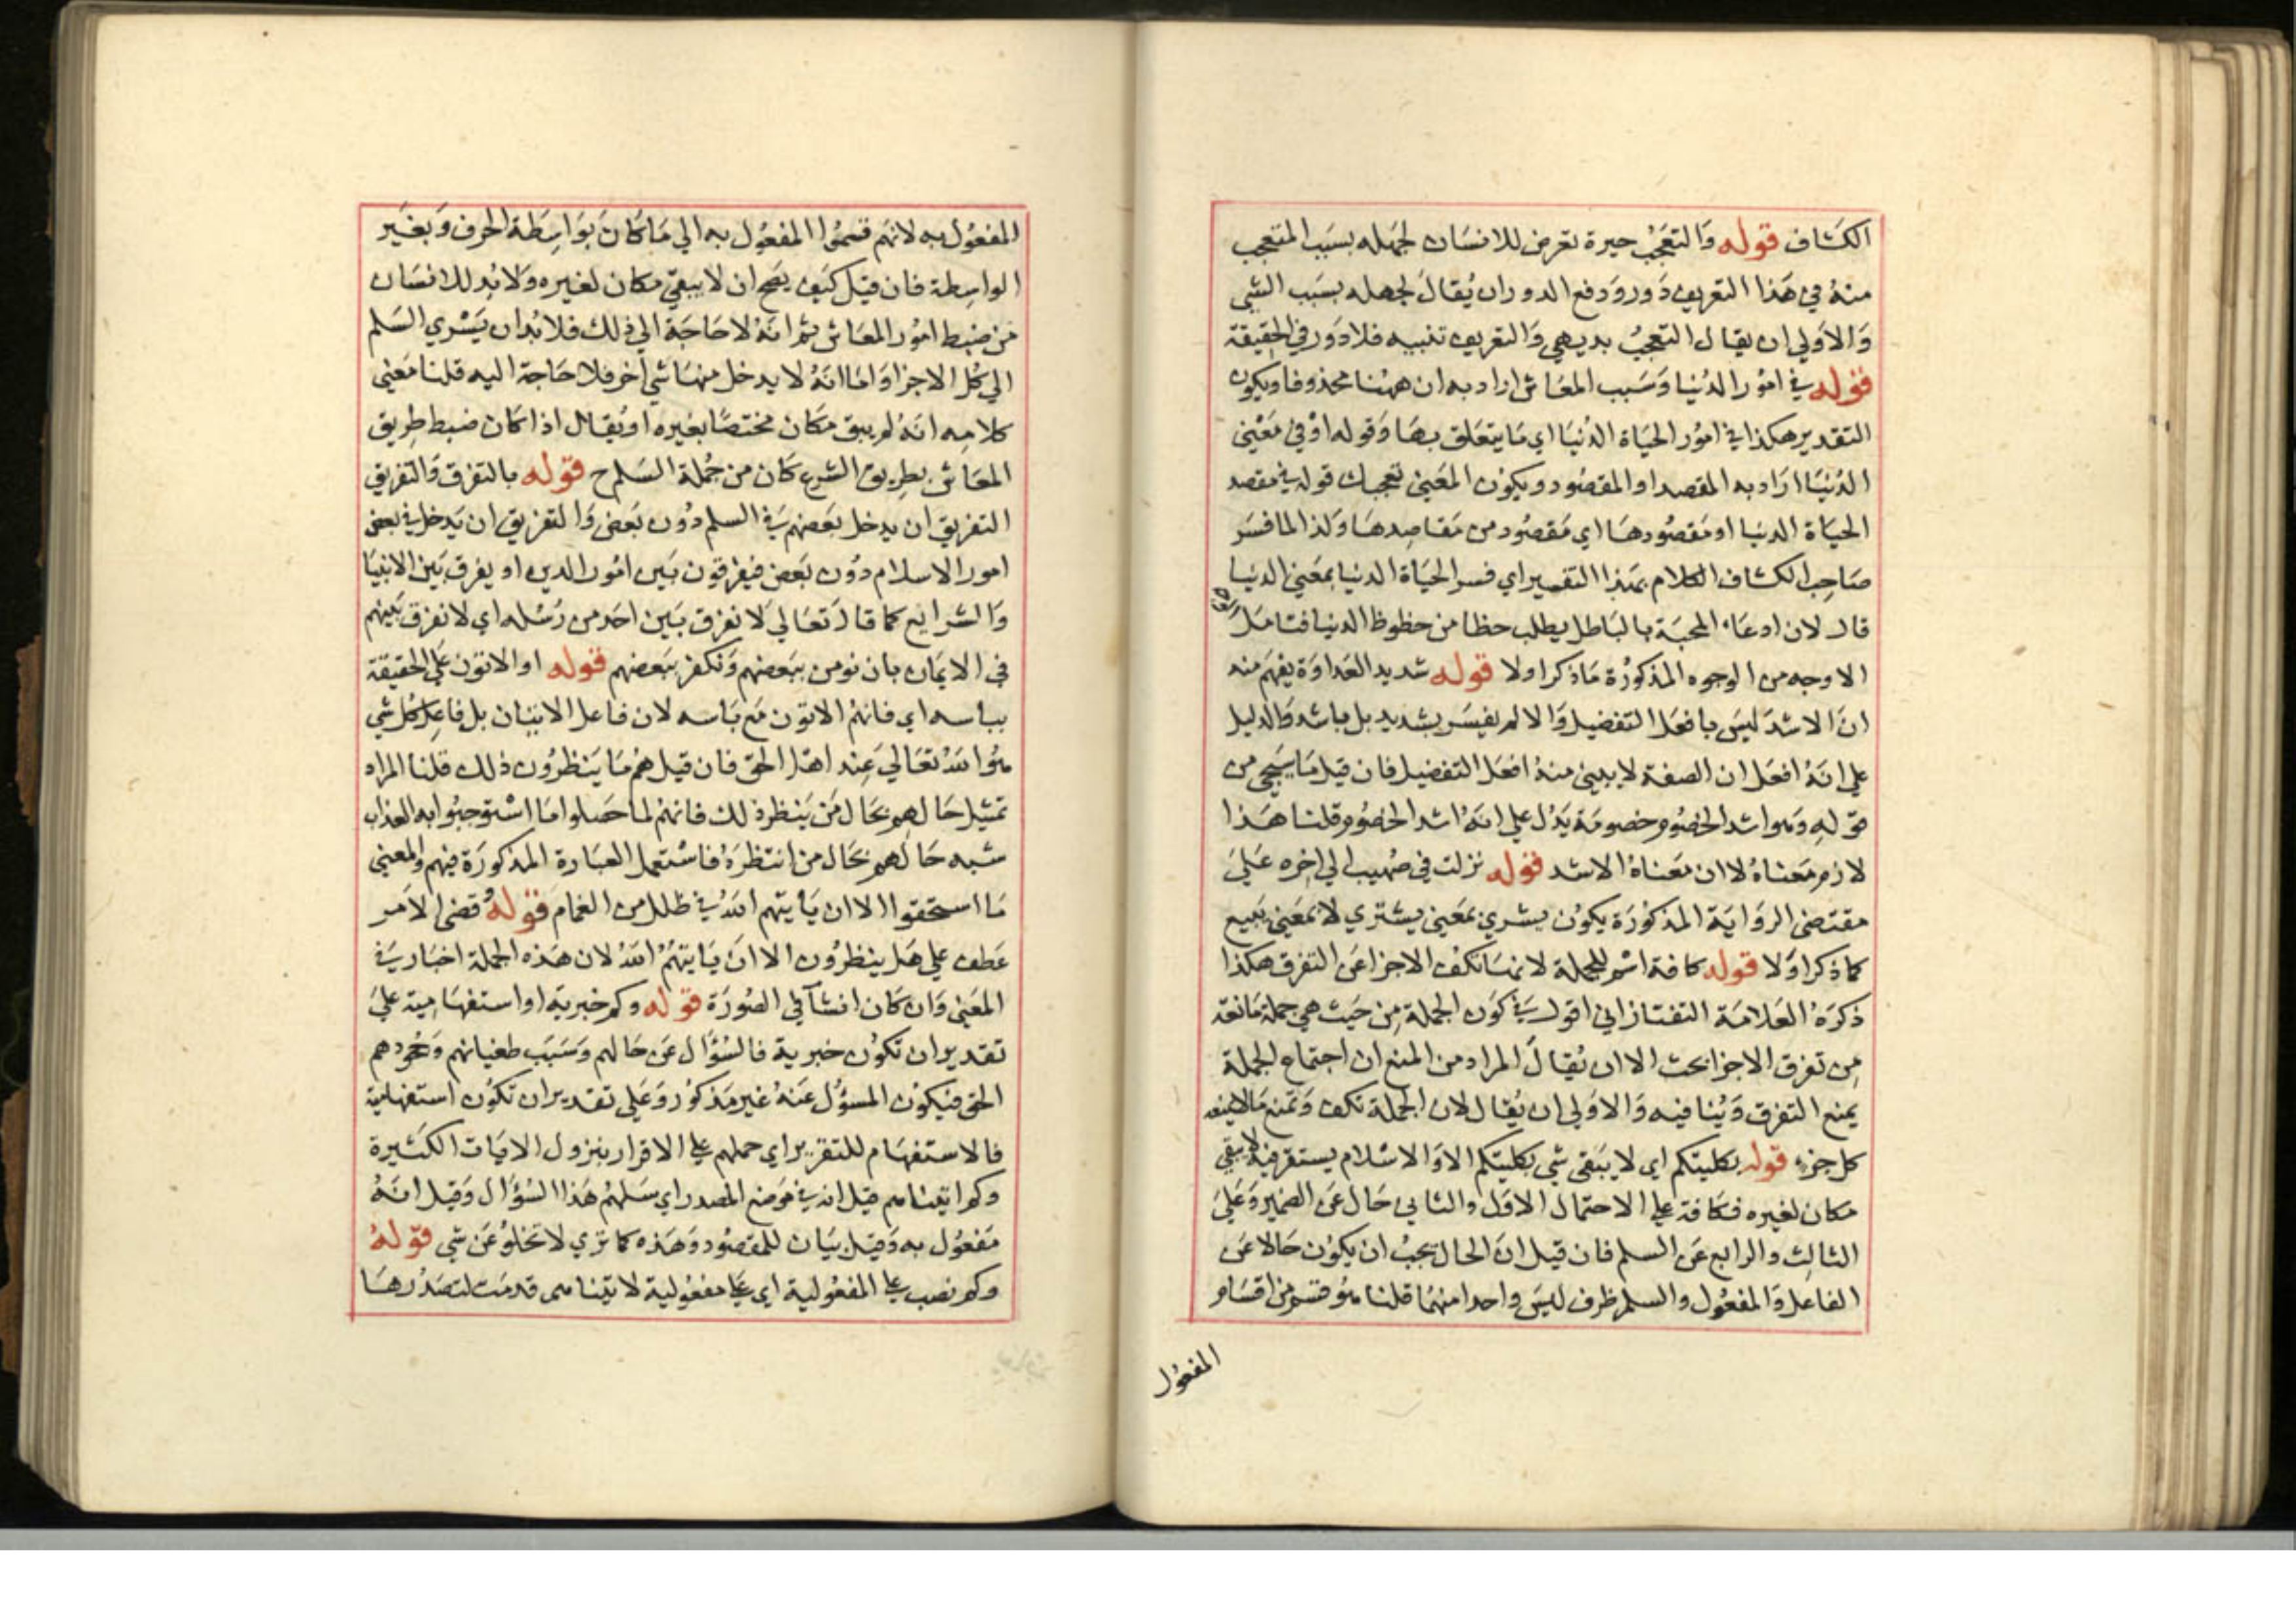 الكشاف قوله والتعجب حيرة تعرض للانسان لجهله بسبب المتعجب
منه في هذا التعريف دور ودفع الدور ان يُقال لجهله بسبب الشي
والاولي ان يقال التعجب بديهي والتعريف تنبيه فلا دور في الحقيقة
قوله في امور الدنيا وسبب المعاش اراد به ان ههنا محذوفا ويكون
التقدير هكذا في امور الحياة الدنيا اي ما يتعلق بها وقوله او في معني
الدنيا اراد به المقصد او المقصود ويكون المعني تعجبك قوله في مقصد
الحياة الدنيا او مقصودها اي مقصود من مقاصدها ولذا لما فسر
صاحب الكشاف الكلام بهذا التفسير اي فسر الحياة الدنيا بمعني الدنيا
قال لان ادعاء المحبة بالباطل يطلب حظا من حظوظ الدنيا فتامل
الاوجه من الوجوه المذكورة ما ذكر اولا قوله شديد العداوة يفهم منه
ان الاشد ليس بافعل التفضيل والا لم يفسر بشديد بل باشد والدليل
علي انه افعل ان الصفة لا يبني منه افعل التفضيل فان قيل ما سيجي من
قوله وهو اشد الخصوم خصومة يدل علي انه اشد الخصوم قلنا هذا
لازم معناه لا ان معناه الاشد قوله نزلت في صهيب الي اخره علي
مقتضي الرواية المذكورة يكون يشري بمعني يشتري لا بمعني يبيع
كما ذكر اولا قوله كافة اسم للجملة لانها تكف الاجزا عن التفرق هكذا
ذكره العلامة التفتازاني اقول في كون الجملة من حيث هي جملة مانعة
من تفرق الاجزا بحث الا ان يُقال المراد من المنع ان اجتماع الجملة
يمنع التفرق وينافيه والاولي ان يُقال لان الجملة تكف وتمنع ما لا يمنعه
كل جزء قوله بكليتكم اي لا يبقي شي بكليتكم الا والاسلام يستقر فيه لا يبقي
مكان لغيره فكافة علي الاحتمال الاول والثاني حال عن الضمير وعلي
الثالث والرابع عن السلم فان قيل ان الحال يجب ان يكون حالا عن
الفاعل والمفعول والسلم ظرف ليس واحدا منهما قلنا هو قسم من اقسام
المفعول
المفعول به لانهم قسموا المفعول به الي ما كان بواسطة الحرف وبغير
الواسطة فان قيل كيف يصح ان لا يبقي مكان لغيره ولا بد للانسان
من ضبط امور المعاش ثم انه لا حاجة الي ذلك فلا بد ان يسري السلم
الي كل الاجزا واما انه لا يدخل منها شي اخر فلا حاجة اليه قلنا معني
كلامه انه لم يبق مكان مختصا بغيره او يُقال اذا كان ضبط طريق
المعاش بطريق الشرع كان من جملة السلم ح قوله بالتفرق والتفريق
التفريق ان يدخل بعضهم في السلم دون بعض والتفريق ان يدخل في بعض
امور الاسلام دون بعض فيفرقون بين امور الدين او يفرق بين الانبيا
والشرايع كما قال تعالي لا نفرق بين احد من رسله اي لا نفرق بينهم
في الايمان بان نومن ببعضهم ونكفر ببعضهم قوله او الاتون علي الحقيقة
بباسه اي فانهم الاتون مع باسه لان فاعل الاتيان بل فاعل كل شي
هو الله تعالي عند اهل الحق فان قيل هم ما ينظرون ذلك قلنا المراد
تمثيل حالهم بحال من ينظر ذلك فانهم لما حصلوا ما استوجبوا به العذاب
شبه حالهم بحال من انتظره فاستعمل العبارة المذكورة فيهم والمعني
ما استحقوا الا ان ياتيهم الله في ظلل من الغمام قوله قضي الامر
عطف علي هل ينظرون الا ان ياتيهم الله لان هذه الجملة اخبار في
المعني وان كان انشآ في الصورة قوله وكم خبرية او استفهامية علي
تقدير ان تكون خبرية فالسؤال عن حالهم وسبب طغيانهم وجحودهم
الحق فيكون المسؤل عنه غير مذكور وعلي تقدير ان تكون استفهامية
فالاستفهام للتقرير اي حملهم علي الاقرار بنزول الايات الكثيرة
وكم اتيناهم قيل انه في موضع المصدر اي سلهم هذا السؤال وقيل انه
مفعول به وقيل بيان للمقصود وهذه كما تري لا تخلو عن شي قوله
وكم نصب علي المفعولية اي علي مفعولية لاتيناهم قدمت لتصدرها